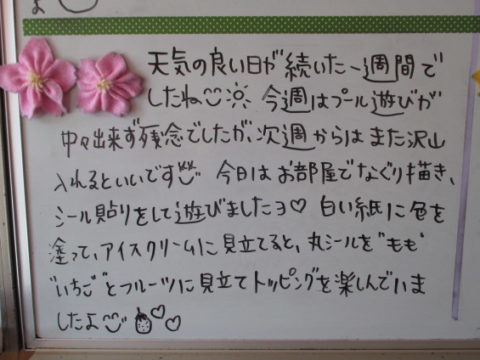 よ
天気の良い日が続いた一週間で
したね
今週はプール遊びが
中々出来ず残念でしたが、次週からはまた沢山
入れるといいです 今日はお部屋でなぐり描き、
シール貼りをして遊びましたヨ♡ 白い紙に色を
塗って、アイスクリームに見立てると、丸シールを“もも”
“いちご”とフルーツに見立てトッピングを楽しんでいま
したよ ♡♡